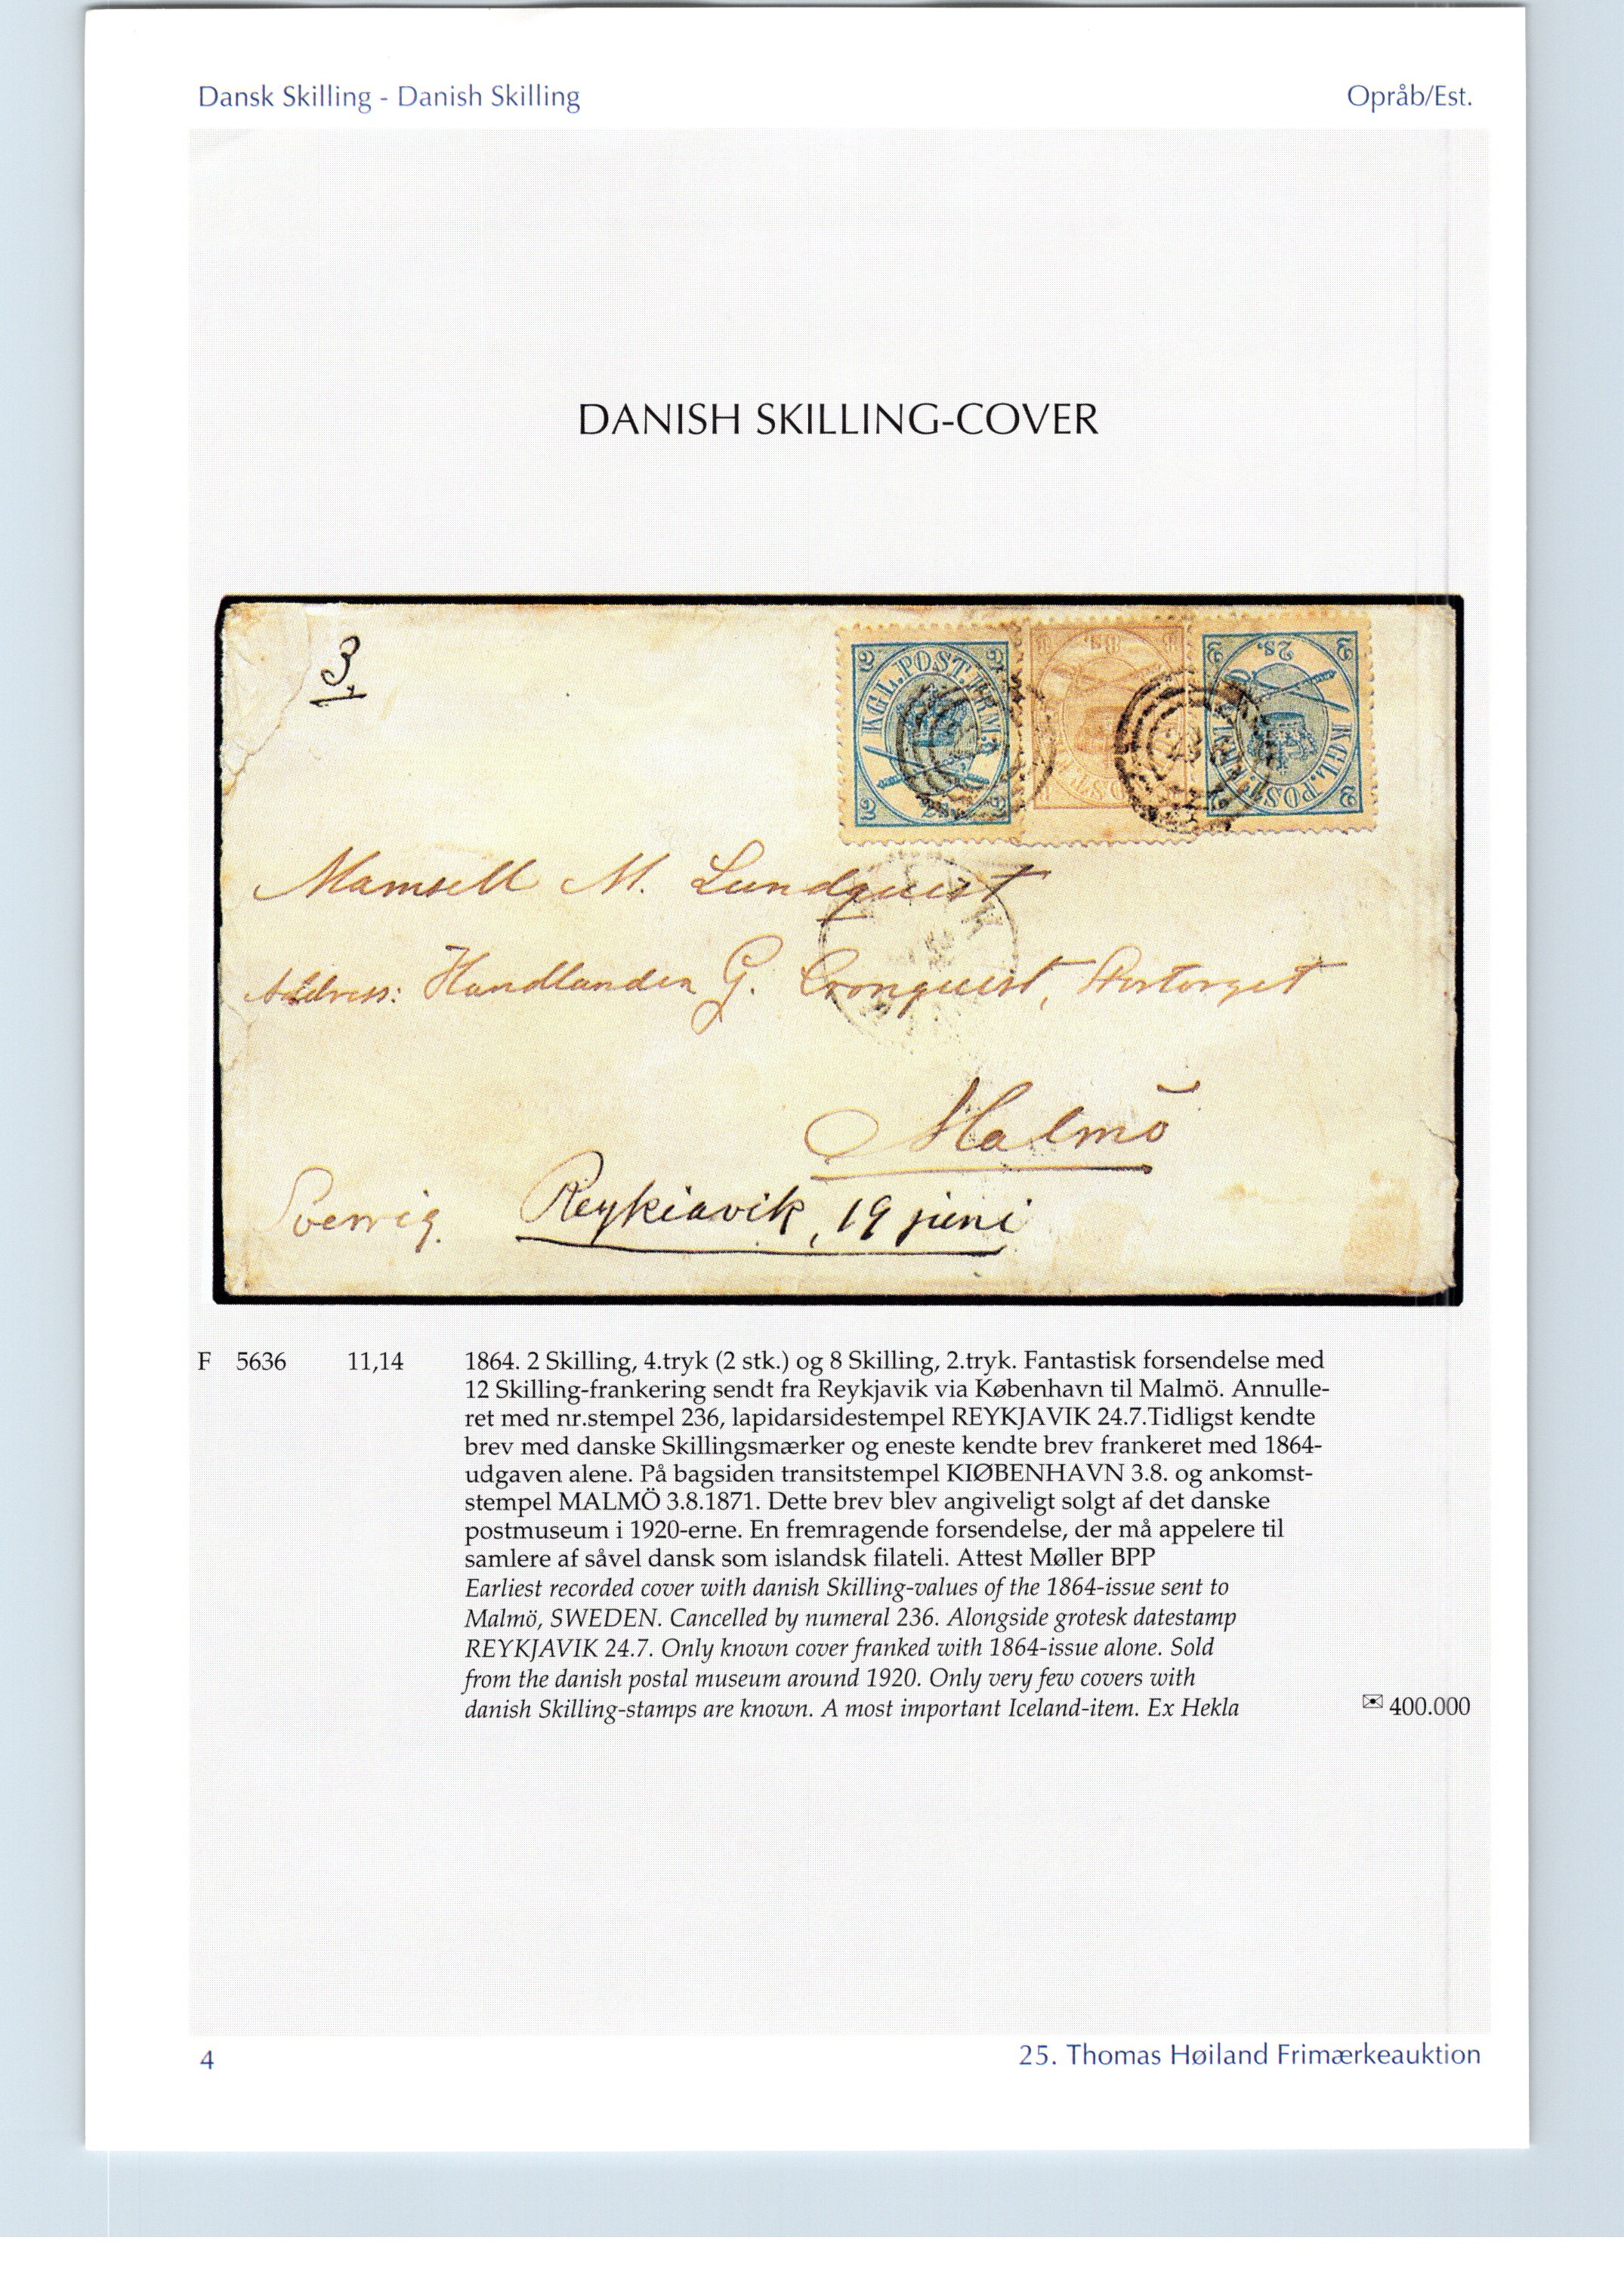 Dansk Skilling - Danish Skilling
Opråb/Est.
DANISH SKILLING-COVER
3
2 KGL. POST. FRM. 2
2 2S. 2
8 8S. 8
2 2S. 2
2 KGL. POST FRM. 2
Mamsell M. Lundquist
Address: Handlanden G. Cronquist, Stortorget
Malmö
Sverrig. Reykiavik, 19 juni
F 5636 11,14 1864. 2 Skilling, 4.tryk (2 stk.) og 8 Skilling, 2.tryk. Fantastisk forsendelse med
12 Skilling-frankering sendt fra Reykjavik via København til Malmö. Annulle-
ret med nr.stempel 236, lapidarsidestempel REYKJAVIK 24.7.Tidligst kendte
brev med danske Skillingsmærker og eneste kendte brev frankeret med 1864-
udgaven alene. På bagsiden transitstempel KIØBENHAVN 3.8. og ankomst-
stempel MALMÖ 3.8.1871. Dette brev blev angiveligt solgt af det danske
postmuseum i 1920-erne. En fremragende forsendelse, der må appelere til
samlere af såvel dansk som islandsk filateli. Attest Møller BPP
Earliest recorded cover with danish Skilling-values of the 1864-issue sent to
Malmö, SWEDEN. Cancelled by numeral 236. Alongside grotesk datestamp
REYKJAVIK 24.7. Only known cover franked with 1864-issue alone. Sold
from the danish postal museum around 1920. Only very few covers with
danish Skilling-stamps are known. A most important Iceland-item. Ex Hekla ✉ 400.000
4
25. Thomas Høiland Frimærkeauktion